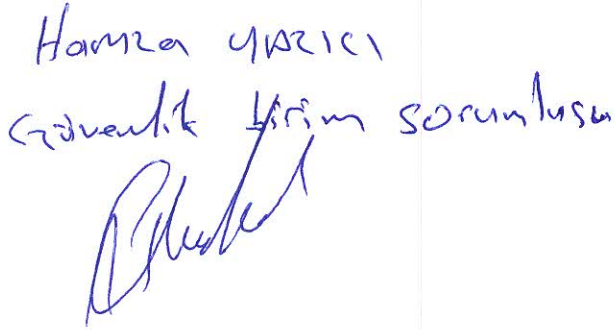 Hamza YAZICI
Güvenlik birim sorumlusu